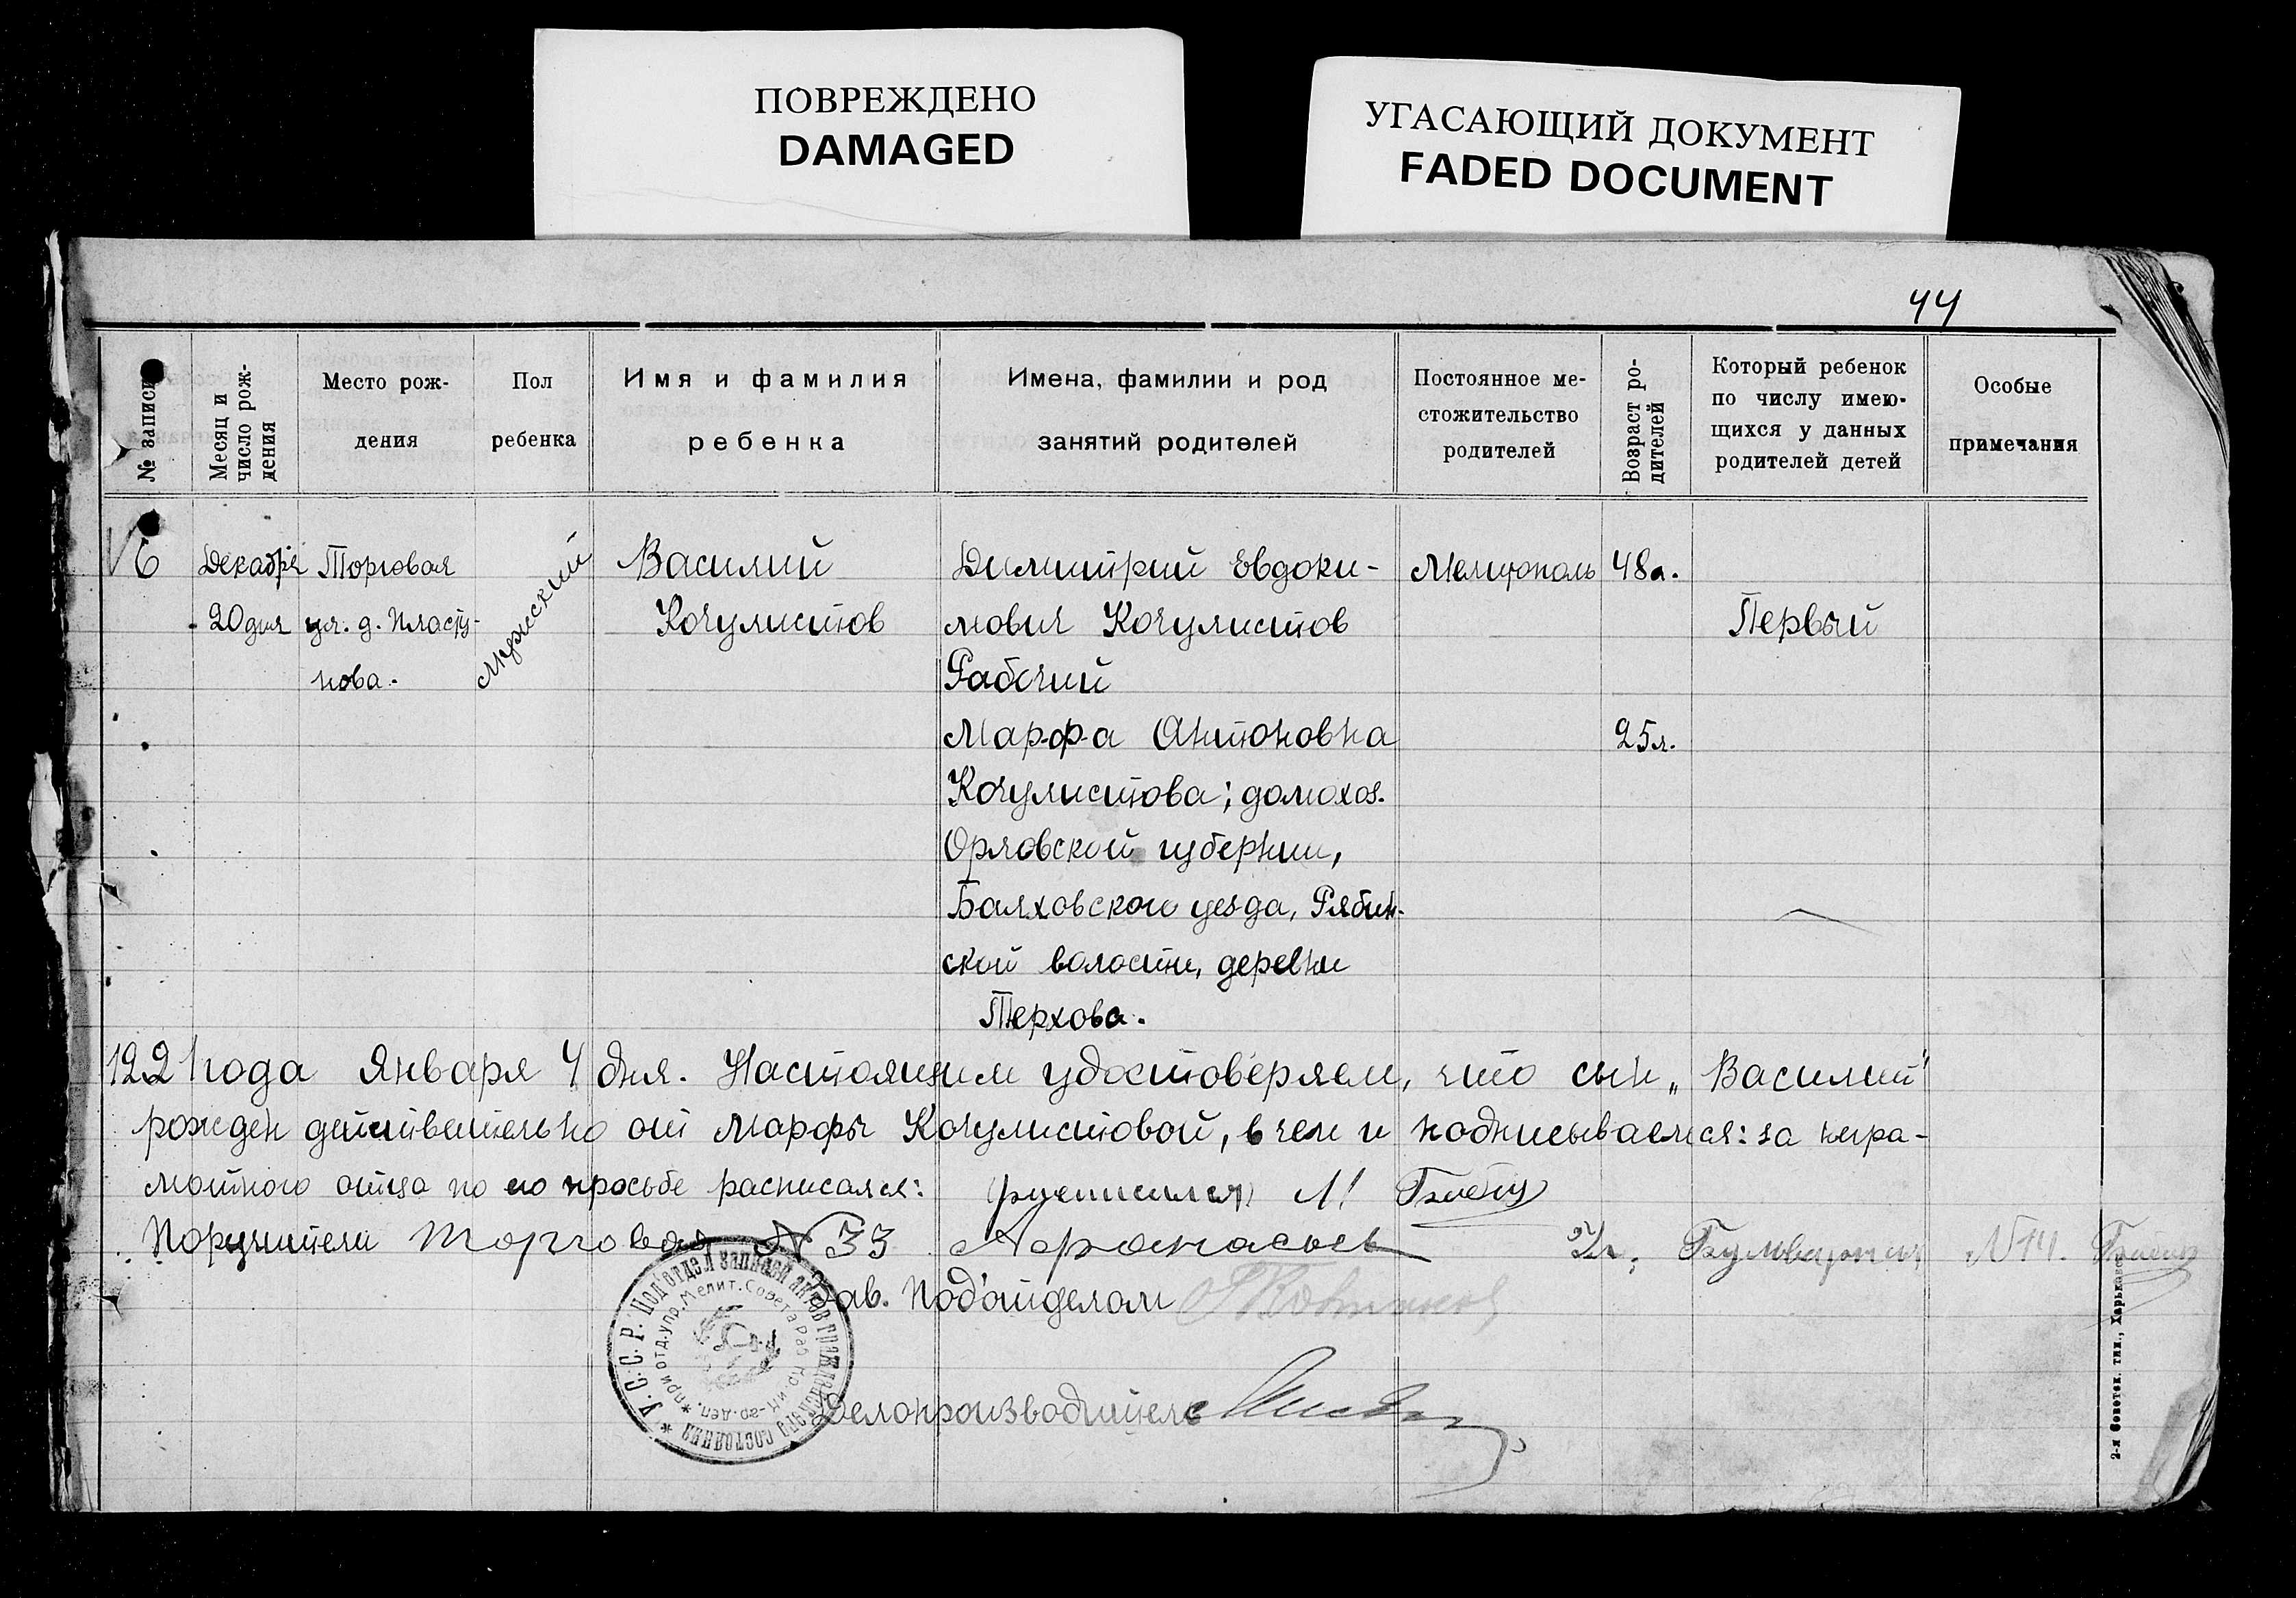 ПОВРЕЖДЕНО
DAMAGED
УГАСАЮЩИЙ ДОКУМЕНТ
FADED DOCUMENT
44
№ записи
Месяц и
число рож-
дения
Место рож-
дения
Пол
ребенка
Имя и фамилия
ребенка
Имена, фамилии и род
занятий родителей
Постоянное ме-
стожительство
родителей
Возраст ро-
дителей
Который ребенок
по числу имею-
щихся у данных
родителей детей
Особые
примечания
Декабря
20 дня
Торговая
ул. д. Пласту-
нова.
Мужский
Василий
Кочулистов
Димитрий Евдоки-
мович Кочулистов
Рабочий
Марфа Антоновна
Кочулистова; домохоз.
Орловской губернии,
Балховского уезда, Рябин-
ской волости, деревни
Терхова.
Мелитополь
48 л.
25 л.
Первый
1921 года Января 4 дня. Настоящим удостоверяем, что сын „Василий"
рожден действительно от Марфы Кочулистовой, в чем и подписываемся: за негра-
мотного отца по его просьбе расписался:
Поручители Торговая № 33 Афанасьев
Ул. Бульварная № 14.
Зав. Под'отделом
Делопроизводитель
У. С. С. Р. Под'отдел записей актов гражданского состояния
при отд. упр. Мелит. Совета Раб. Кр. и Кр-ар. деп.
2-я Советск. тип., Харьков